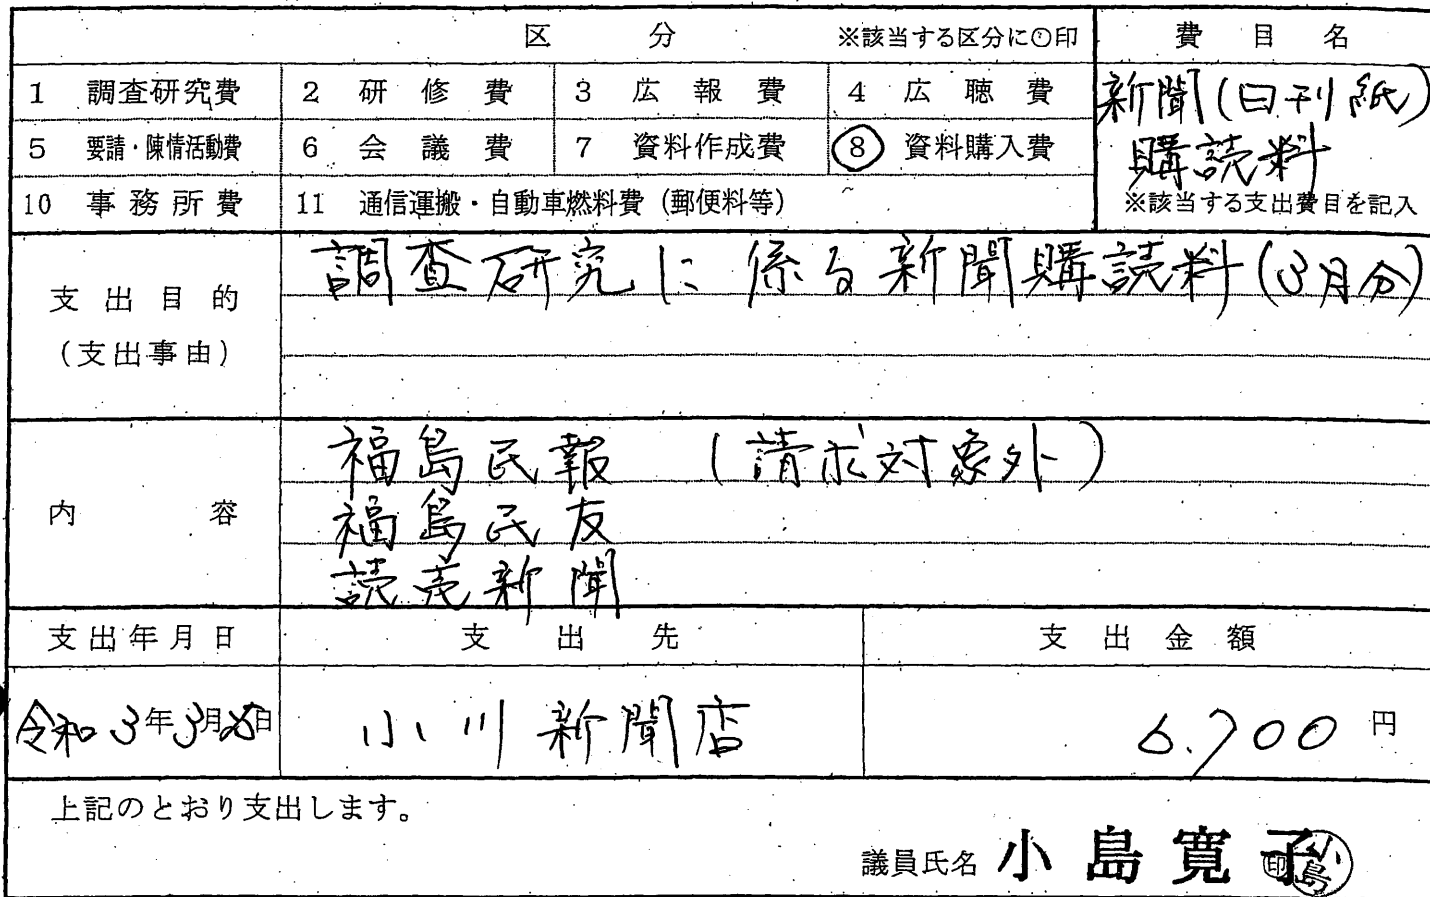 区分 ※該当する区分に○印 費目名
1 調査研究費 2 研修費 3 広報費 4 広聴費
新聞(日刊紙)
5 要請・陳情活動費 6 会議費 7 資料作成費 ⑧ 資料購入費
購読料
10 事務所費 11 通信運搬・自動車燃料費(郵便料等)
※該当する支出費目を記入
支出目的
(支出事由)
調査研究に係る新聞購読料(3月分)
内容
福島民報 (請求対象外)
福島民友
読売新聞
支出年月日 支出先 支出金額
令和3年3月 日 小川新聞店 6.700円
上記のとおり支出します。
議員氏名 小島寛子 印 小島